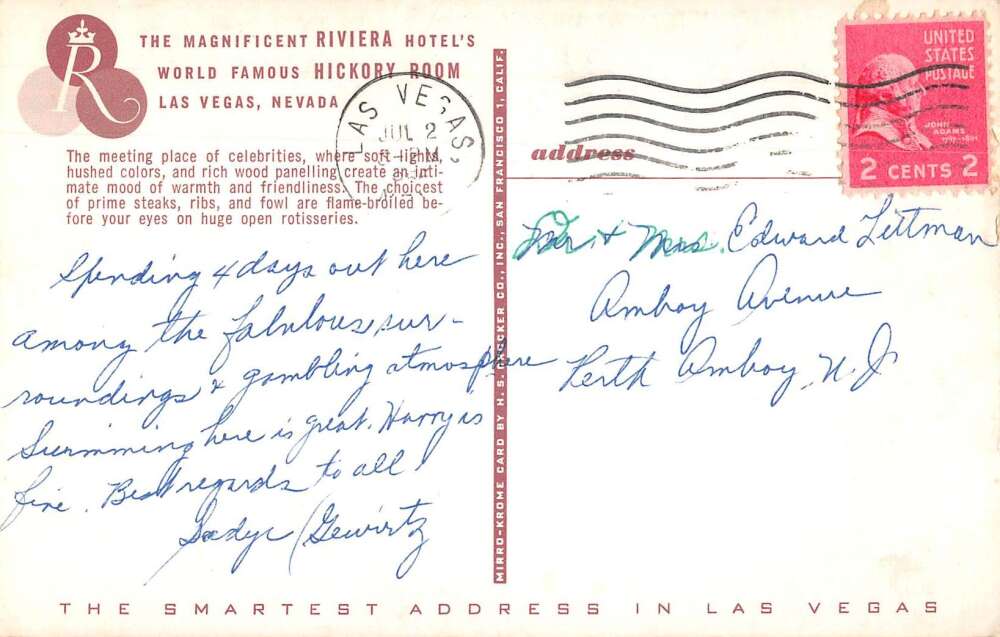 R
THE MAGNIFICENT RIVIERA HOTEL'S
WORLD FAMOUS HICKORY ROOM
LAS VEGAS, NEVADA
The meeting place of celebrities, where soft lights,
hushed colors, and rich wood panelling create an inti-
mate mood of warmth and friendliness. The choicest
of prime steaks, ribs, and fowl are flame-broiled be-
fore your eyes on huge open rotisseries.
Spending 4 days out here
among the fabulous sur-
roundings & gambling atmosphere
Swimming here is great. Harry is
fine. Best regards to all
Sadye (Gewirtz
MIRRO-KROME CARD BY H. S. CROCKER CO., INC., SAN FRANCISCO 1, CALIF.
LAS VEGAS,
JUL 2
PM
UNITED
STATES
POSTAGE
JOHN
ADAMS
1797-1801
2 CENTS 2
address
& Mrs. Edward Littman
Amboy Avenue
Perth Amboy, N. J.
THE SMARTEST ADDRESS IN LAS VEGAS